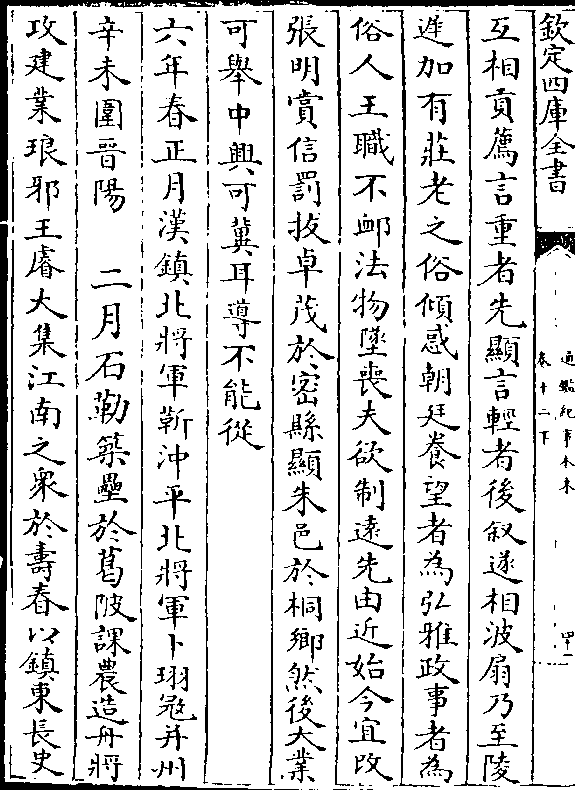 欽定四庫全書
通鑑紀事本末
卷十二下
四一
互相貢薦言重者先顯言輕者後叙遂相波扇乃至陵
遲加有莊老之俗傾惑朝廷養望者為弘雅政事者為
俗人王職不䘏法物墜喪夫欲制遠先由近始今宜改
張明賞信罰拔卓茂於密縣顯朱邑於桐鄉然後大業
可舉中興可冀耳導不能從
六年春正月漢鎮北將軍靳沖平北將軍卜珝冦并州
辛未圍晉陽　二月石勒築壘於葛陂課農造舟將
攻建業琅邪王睿大集江南之衆於壽春以鎮東長史